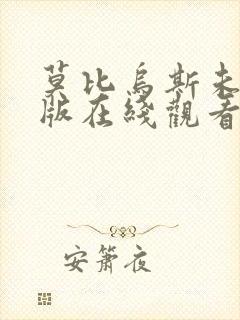 莫比烏斯未
版在綫觀看
安簫夜